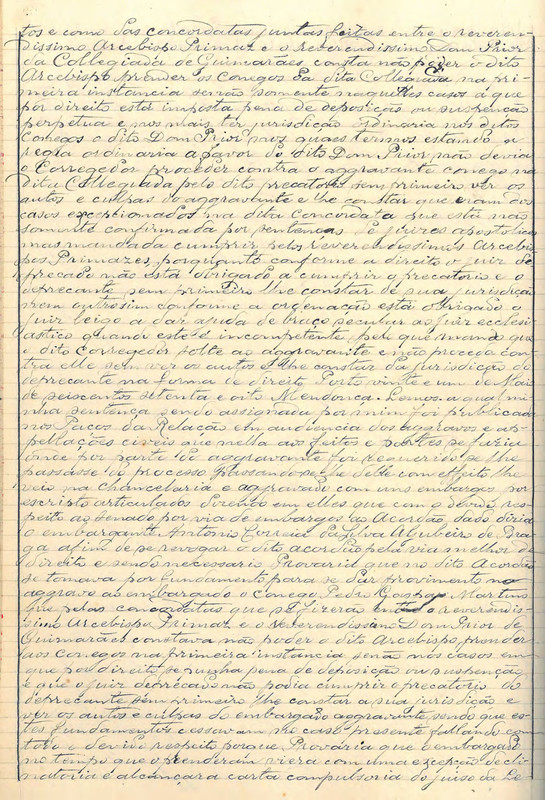 tos e como das concordatas juntas feitas entre o reveren-
dissimo Arcebispo Primaz e o reverendissimo Dom Prior
da Collegiada de Guimarães consta não poder o dito
Arcebispo prender os Conegos da dita Collegiada na pri-
meira instancia senão somente naquelles casos a que
por direito está imposta pena de deposição ou suspenção
perpetua e nos mais ter jurisdição ordinaria nos ditos
conegos o dito Dom Prior nos quaes termos estando a
regra ordinaria a favor do dito Dom Prior não devia
o Corregedor proceder contra o aggravante conego na
dita Collegiada pelo dito precatorio sem primeiro ver os
autos e culpas do aggravante e lhe constar que eram dos
casos excepcionados na dita concordata que está não
somente confirmada por sentenças de juizes apostolicos
mas mandada cumprir pelos reverendissimos Arcebis-
pos Primazes, porquanto conforme a direito o juiz de-
precado não está obrigado a cumprir o precatorio e o
deprecante sem primeiro lhe constar de sua jurisdição
nem outrosim conforme a ordenação está obrigado o
juiz leigo a dar ajuda de braço secular ao juiz eccle-
siastico quando este é incompetente, pelo que mando que
o dito Corregedor solte ao aggravante e não proceda con-
tra elle sem ver os autos e lhe constar da jurisdição do
deprecante na forma de direito Porto vinte e um de Maio
de seiscentos setenta e oito Mendonca. Lemos. a qual mi-
nha sentença sendo assignada por mim foi publicada
nos Paços da Relação em audiencia dos aggravos e ap-
pellações civeis que nella aos feitos e partes se fazia
onde por parte do aggravante foi requerido se lhe
passasse do processo. Passando se-lhe delle com effeito lhe
veis na chancelaria o aggravado com uns embargos por
escripto articulados dizendo em elles que com o devido res-
peito ao Senado por via de embargos ao Acordão dado dizia
o embargante Antonio Correia da Silva Alubeiro de Bra-
ga afim de se revogar o dito acordão pela via melhor de
direito e sendo necessario Provaria que no dito Acordão
se tomava por fundamento para se dar provimento no
aggravo ao embargado o Conego Pedro Gaspar Martins
que pelas concordatas que se fizerão entre o reverendis-
simo Arcebispo Primaz e o reverendissimo Dom Prior de
Guimarães constava não poder o dito Arcebispo prender
aos conegos na primeira instancia senão nos casos em
que por direito se punha pena de deposição ou suspenção
e que o juiz deprecado não podia cumprir o precatorio do
deprecante sem primeiro lhe constar a sua jurisdição e
ver os autos e culpas do embargado aggravante sendo que es-
tes fundamentos cessavam no caso presente fallando com
todo o devido respeito porque Provaria que o embargado
no tempo que o prenderam viera com uma excepção decli-
natoria e alcançara carta compulsoria do juiso da Le